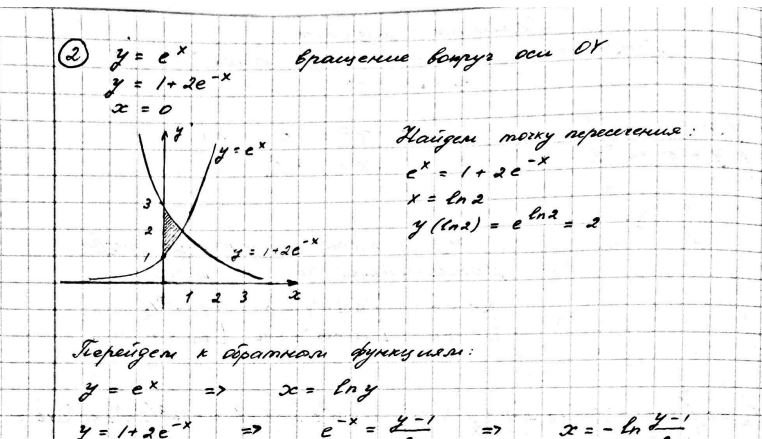 2 y = e^x вращение вокруг оси OY
y = 1 + 2e^-x
x = 0
y
y = e^x
Найдем точку пересечения:
e^x = 1 + 2e^-x
x = ln2
y(ln2) = e^ln2 = 2
3
2
1
y = 1+2e^-x
1 2 3 x
Перейдем к обратным функциям:
y = e^x => x = ln y
y = 1+2e^-x => e^-x = y-1 => x = -ln y-1